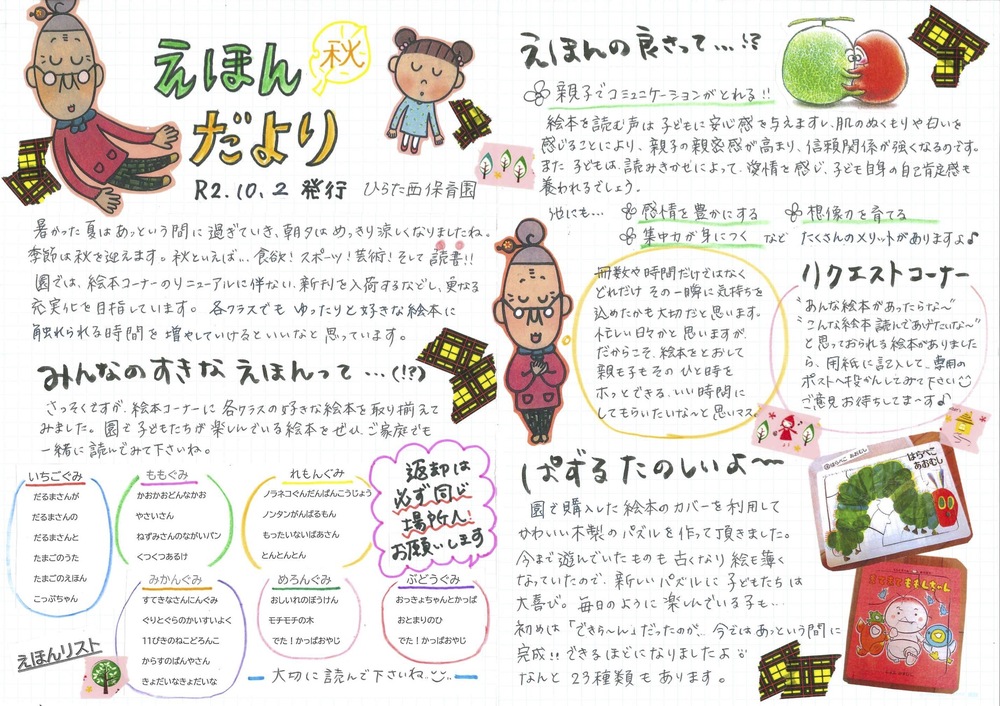 えほん
秋
だより
R2.10.2 発行 ひらた西保育園
暑かった夏はあっという間に過ぎていき、朝夕はめっきり涼しくなりましたね。
季節は秋を迎えます。秋といえば… 食欲！スポーツ！芸術！そして読書!!
園では、絵本コーナーのリニューアルに伴ない、新刊を入荷するなどし、更なる
充実化を目指しています。各クラスでも ゆったりと好きな絵本に
触れられる時間を 増やしていけるといいなと思っています。
みんなのすきな えほんって…(!?)
さっそくですが、絵本コーナーに各クラスの好きな絵本を取り揃えて
みました。園で子どもたちが楽しんでいる絵本をぜひ、ご家庭でも
一緒に読んでみて下さいね。
いちごぐみ
だるまさんが
だるまさんの
だるまさんと
たまごのうた
たまごのえほん
こっぷちゃん
ももぐみ
かおかおどんなかお
やさいさん
ねずみさんのながいパン
くつくつあるけ
れもんぐみ
ノラネコぐんだんぱんこうじょう
ノンタンがんばるもん
もったいないばあさん
とんとんとん
返却は
必ず同じ
場所へ!
お願いします
みかんぐみ
すてきなさんにんぐみ
ぐりとぐらのかいすいよく
11ぴきのねこどろんこ
からすのぱんやさん
きょだいなきょだいな
めろんぐみ
おしいれのぼうけん
モチモチの木
でた！かっぱおやじ
ぶどうぐみ
おっきょちゃんとかっぱ
おとまりのひ
でた！かっぱおやじ
えほんリスト
大切に読んで下さいね
えほんの良さって…!?
親子でコミュニケーションがとれる!!
絵本を読む声は子どもに安心感を与えますい、肌のぬくもりや匂いを
感じることにより、親子の親密感が高まり、信頼関係が強くなるのです。
また 子どもは、読みきかせによって、愛情を感じ、子ども自身の自己肯定感も
養われるでしょう。
他にも… 感情を豊かにする 想像力を育てる
集中力が身につく など たくさんのメリットがありますよ♪
冊数や時間だけではなく
どれだけ その一瞬に気持ちを
込めたかも大切だと思います。
忙しい日々かと思いますが、
だからこそ、絵本をとおして
親も子も そのひと時を
ホッとできる、いい時間に
してもらいたいな〜と思いマス。
リクエストコーナー
"あんな絵本があったらな〜"
"こんな絵本 読んであげたいな〜"
と思っておられる絵本がありました
ら、用紙に記入して、専用の
ポストへ投かんしてみて下さい
ご意見お待ちしてま〜す♪
ぱずる たのしいよ〜
園で購入した絵本のカバーを利用して
かわいい木製のパズルを作って頂きました。
今まで遊んでいたものも古くなり 絵も薄く
なっていたので、新しいパズルに子どもたちは
大喜び。毎日のように楽しんでいる子も…
初めは「できら〜ん」だったのが… 今ではあっという間に
完成!! できるほどになりましたよ
なんと 23種類もあります。
はらぺこ あおむし
はらぺこ
あおむし
ももんちゃん